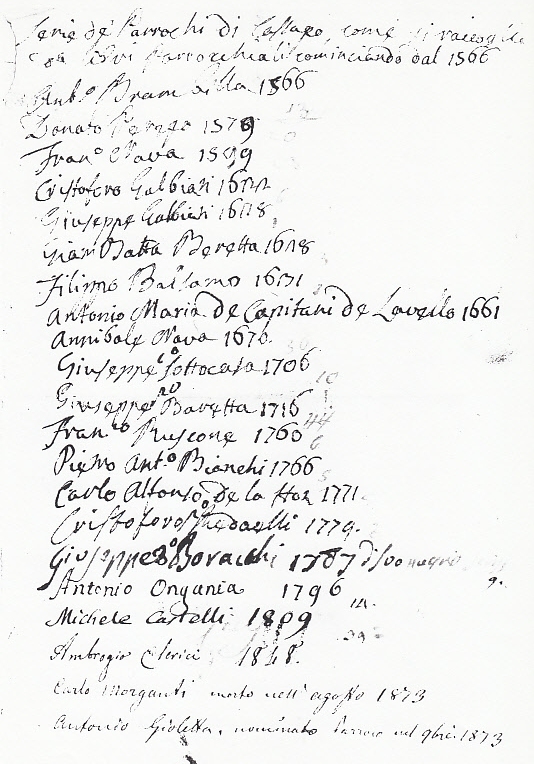 Serie de' Parrochi di Cassago, come si raccoglie
Libri Parrocchiali cominciando dal 1566
Antº Brambilla 1566
Donato Perego 1579
Franº Nava 1599
Cristoforo Galbiati 1622
Giuseppe Galbiati 1628
Giam Batta Beretta 1628
Filippo Balsamo 1631
Antonio Maria de Capitani de Lavello 1661
Annibale Nava 1676
Giuseppe Sottocasa 1706
Giuseppe Baretta 1716
Franco Ruscone 1760
Pietro Antº Bianchi 1766
Carlo Alfonso de la Hoz 1771
Cristoforo Redaelli 1779.
Giuseppe Boracchi 1787
Antonio Ongania 1796
Michele Castelli 1809
Ambrogio Clerici 1848.
Carlo Morganti morto nell' agosto 1873
Antonio Gioletta, nominato Parroco nel 9bre 1873